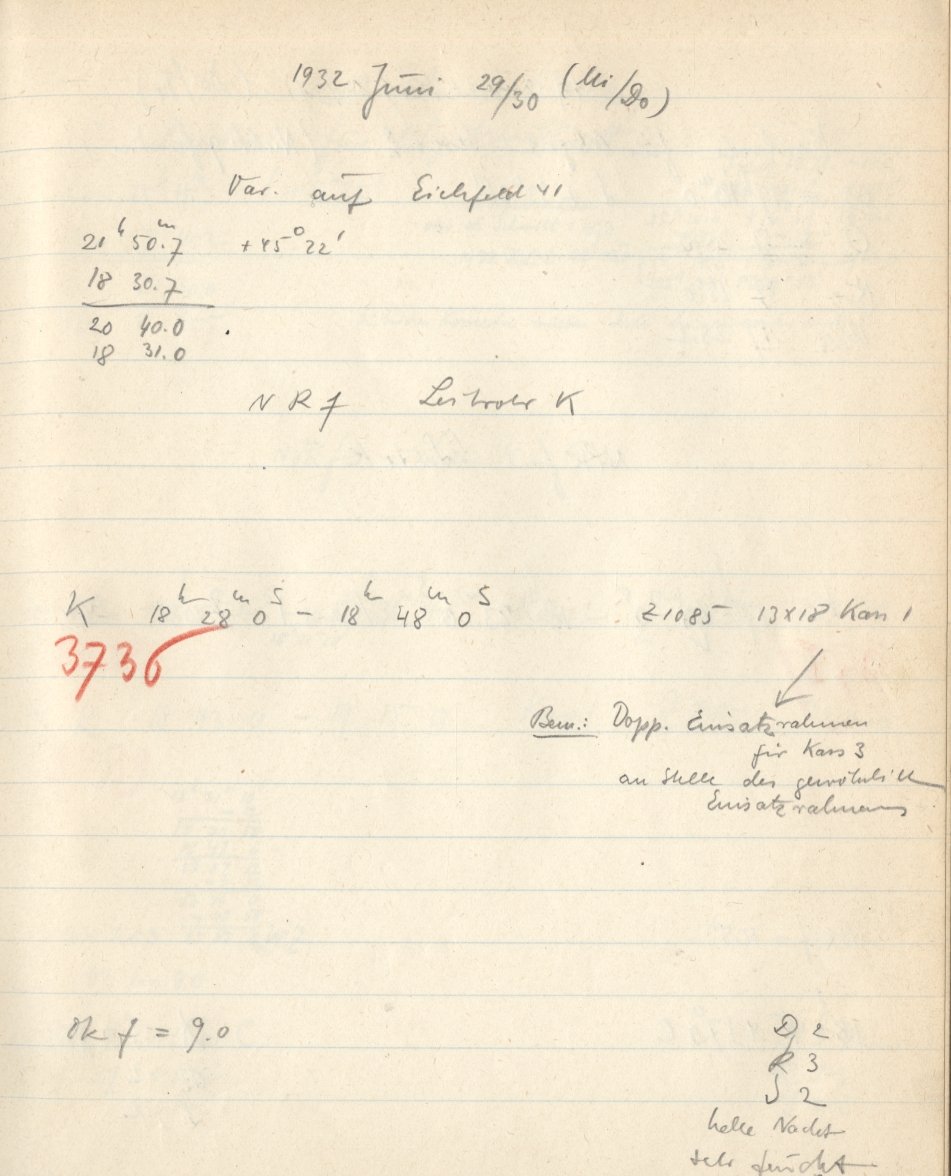 1932 Juni 29/30 (Mi/Do)
Var. auf Eichfeld 41
21ʰ 50.7ᵐ +45° 22'
18 30.7
20 40.0
18 31.0
N R f Leitrohr K
K 18ʰ 28ᵐ 0ˢ – 18ʰ 48ᵐ 0ˢ Z1085 13x18 Kass 1
3736
Bem.: Dopp. Einsatzrahmen
für Kass 3
an Stelle des gewöhnlich
Einsatzrahmens
Ok f = 9.0
D 2
R 3
S 2
helle Nacht
sehr feucht